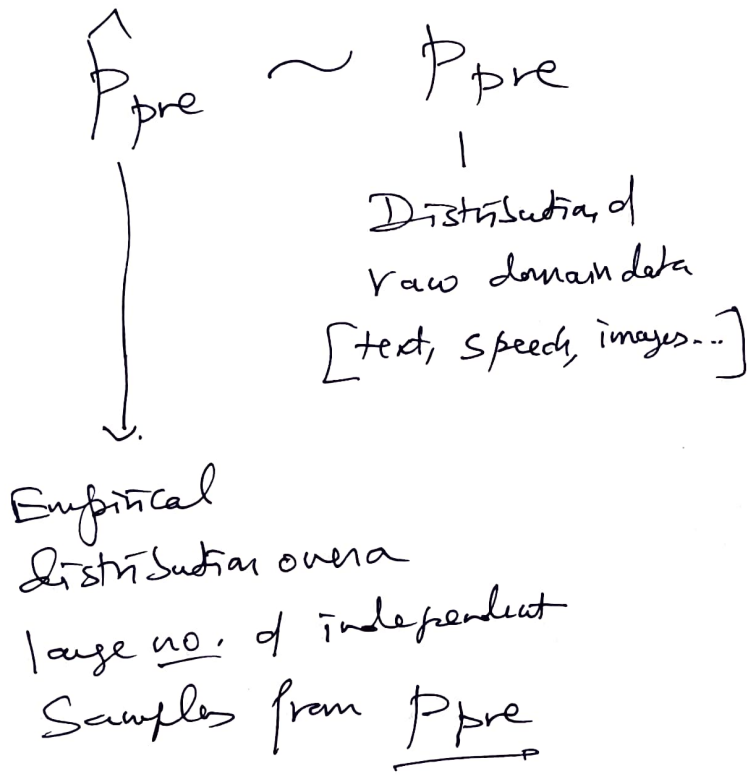 p̂_pre ~ p_pre
Distribution of
raw domain data
[text, speech, images...]
Empirical
distribution over a
large no. of independent
Samples from p_pre